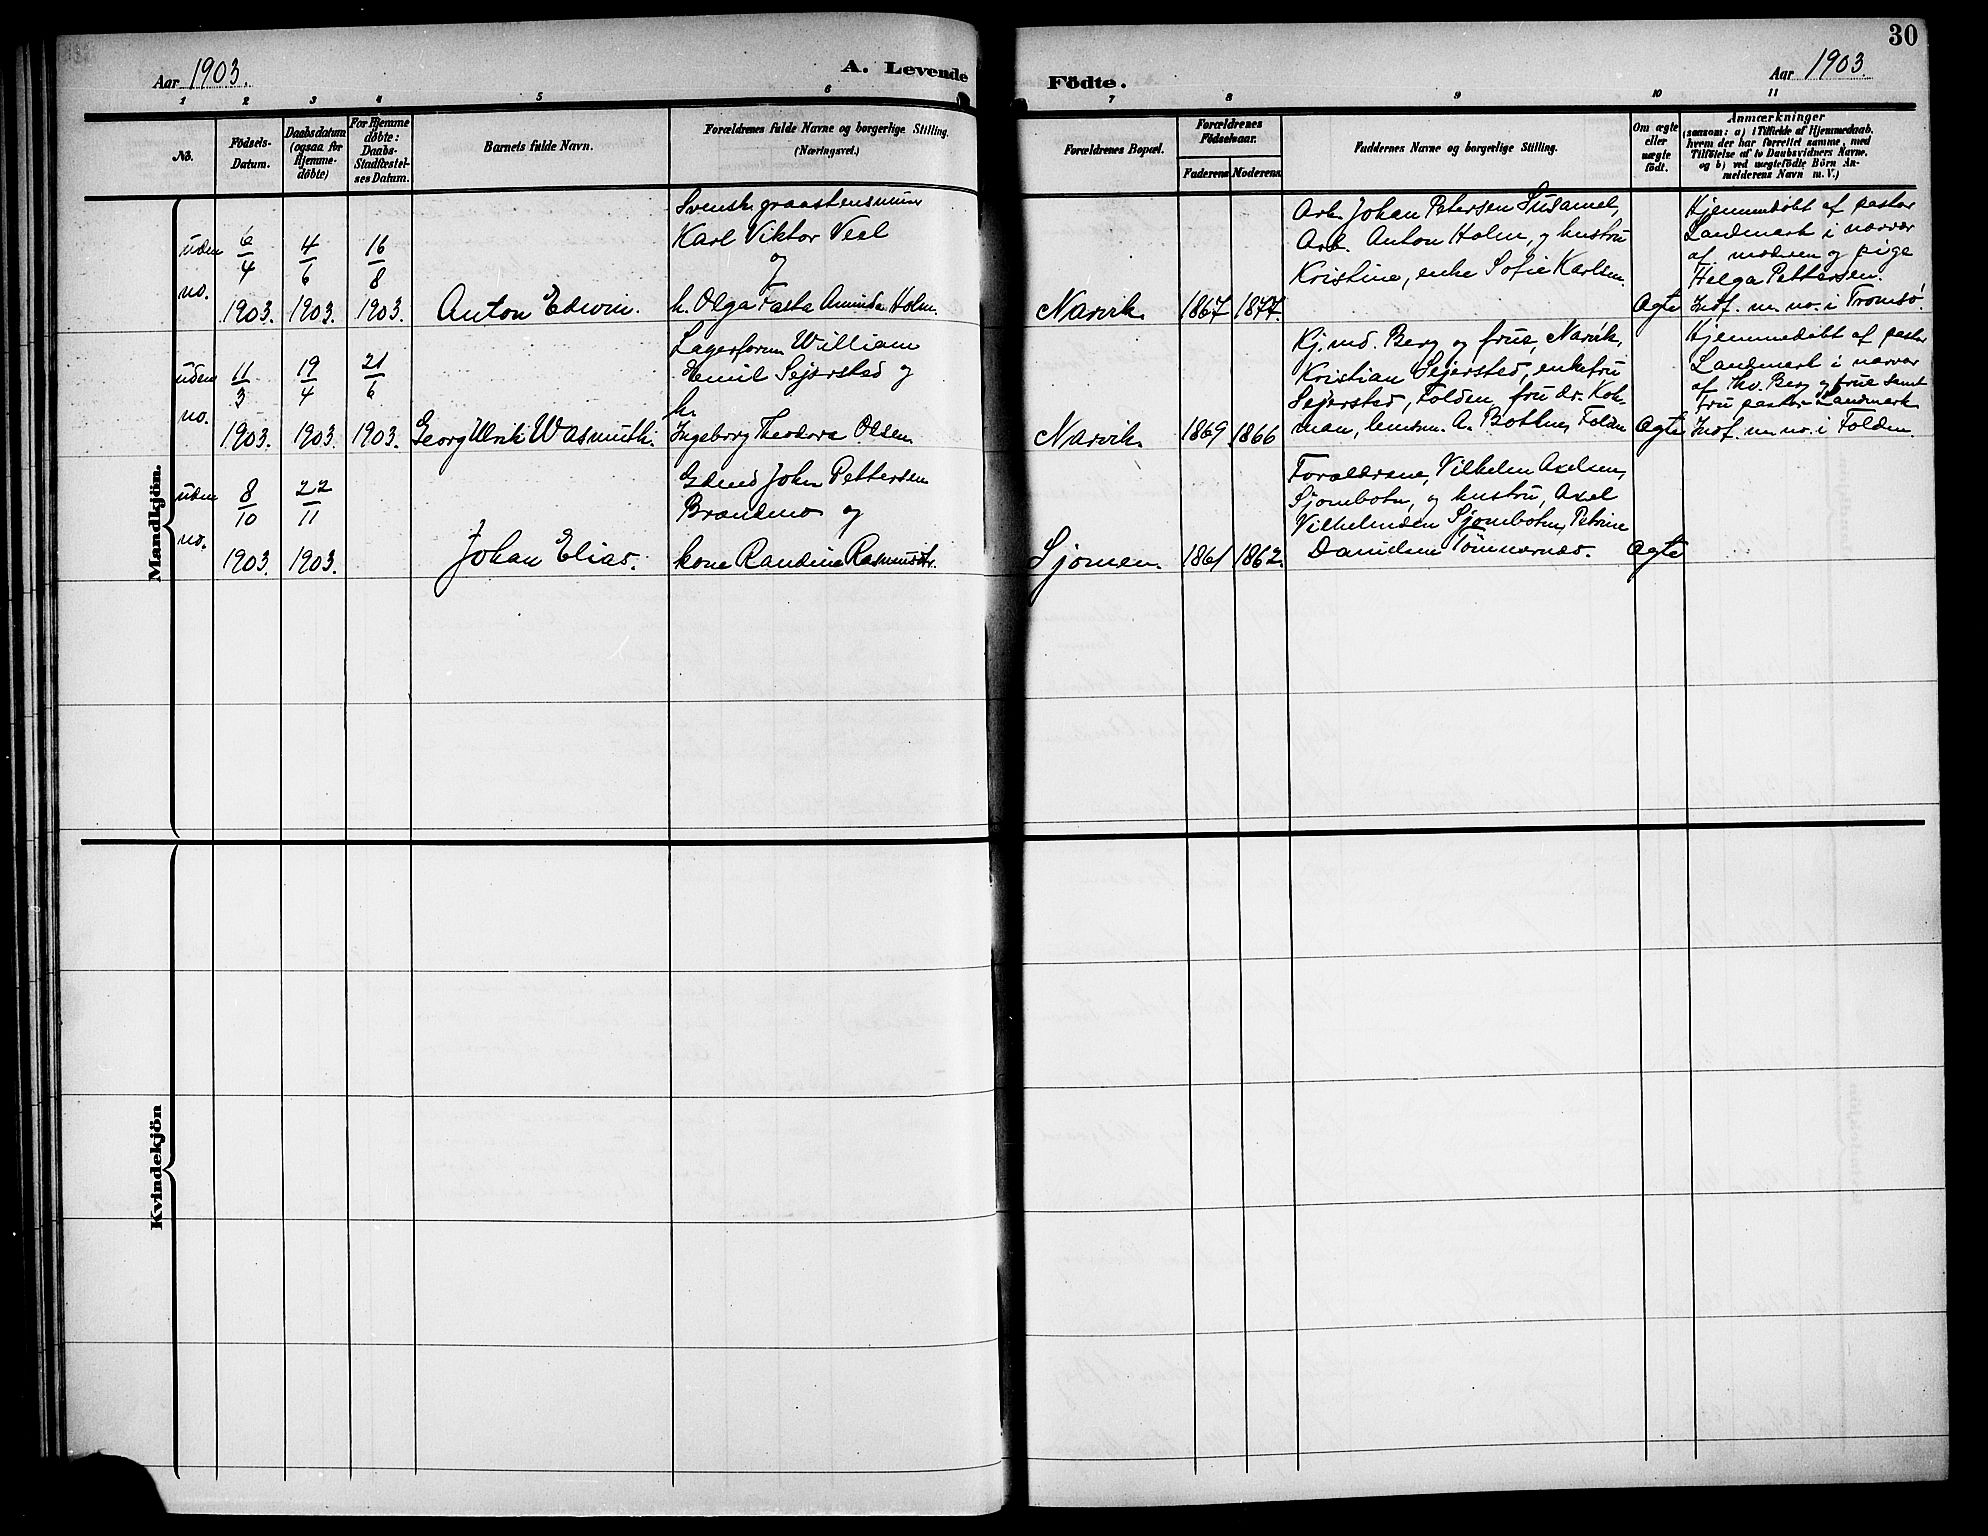 30
Aar 1903.
A. Levende
Födte.
Aar 1903.
1 2 3 4 5 6 7 8 9 10 11
No.
Födsels-
Datum.
Daabsdatum
(ogsaa for
Hjemme-
döbte)
For Hjemme
döbte:
Daabs-
Stadfæstel-
ses Datum.
Barnets fulde Navn.
Forældrenes fulde Navne og borgerlige Stilling.
(Næringsvei.)
Forældrenes Bopæl.
Forældrenes
Födselsaar.
Faderens Moderens
Faddernes Navne og borgerlige Stilling.
Om ægte
eller
uægte
födt.
Anmærkninger
(saasom: a) i Tilfælde af Hjemmedaab,
hvem der har forrettet samme, med
Tilföielse af to Daabsvidners Navne,
og b) ved uegtefödte Börn An-
melderens Navn m. V.)
Mandkjön.
uden
no.
6
4
1903.
4
6
1903.
16
8
1903.
Anton Edwin.
Svensk graastensmurer
Karl Viktor Veel
og
h. Olga Fasta Aminda Holm.
Narvik
1867 1877.
Arb. Johan Petersen
Arb. Anton Holm, og hustru
Kristine, enke Sofie Karlsen
Ægte
Hjemmedøbt af pastor
Landmark i nærvær
af moderen og pige
Helga Pettersen.
Indf. m. no. i Tromsö.
uden
no.
11
3
1903.
19
4
1903.
21
6
1903.
Georg Ulrik Wasmuth.
Lagerform William
Emil Sejersted og
h.
Ingeborg Theodora Olsen
Narvik
1869. 1866
Kjmd. Berg og frue, Narvik,
Kristian Sejersted, enkefru
Sejersted, Folden, fru dr. Koh-
man, A. Bottner Folden
Ægte
Hjemmedöbt af pastor
Landmark i nærvær
af Thv. Berg og frue samt
fru pastor Landmark
Indf. m. no. i Folden.
uden
no.
8
10
1903.
22
11
1903.
Johan Elias.
Gdmd John Pettersen
Brandmo og
kone Randine Rasmusdtr.
Sjomen.
1861 1862.
Forældrene, Vilhelm Axelsen,
Sjombotn, og hustru, Axel
Vilhelmsen Sjombotn, Petrine
Danielsen Tömmernæs.
Ægte
Kvindekjön